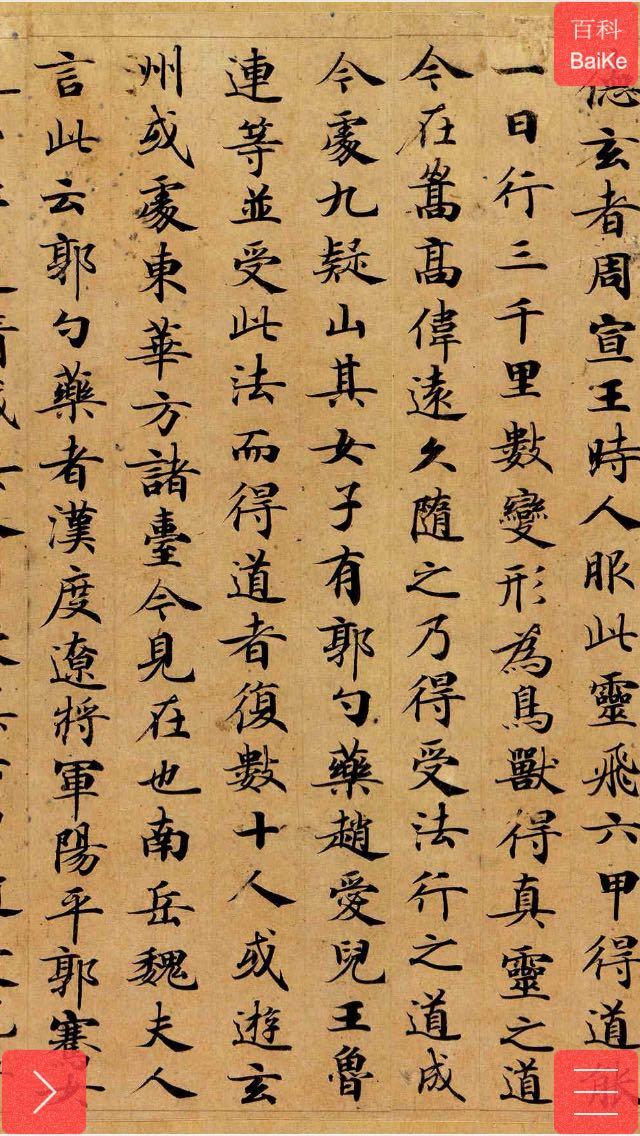 百科
BaiKe
德玄者周宣王時人服此靈飛六甲得道能
一日行三千里數變形為鳥獸得真靈之道
今在嵩高偉遠久隨之乃得受法行之道成
今處九疑山其女子有郭勺藥趙愛兒王魯
連等並受此法而得道者復數十人或遊玄
州或處東華方諸臺今見在也南岳魏夫人
言此云郭勺藥者漢度遼將軍陽平郭騫女